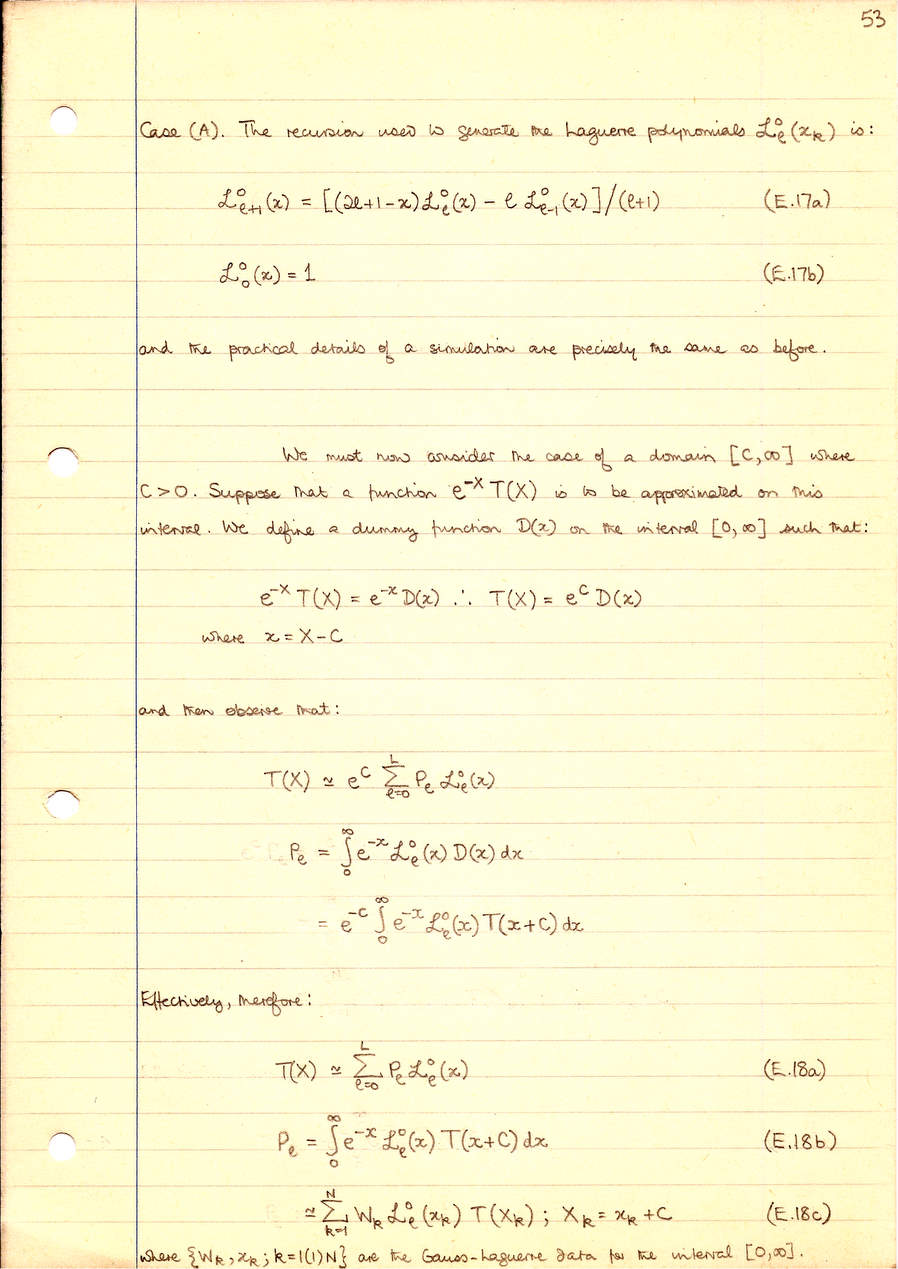 53
Case (A). The recursion used to generate the Laguerre polynomials ℒ⁰_ℓ(x_k) is:
ℒ⁰_{ℓ+1}(x) = [(2ℓ+1-x)ℒ⁰_ℓ(x) - ℓ ℒ⁰_{ℓ-1}(x)]/(ℓ+1) (E.17a)
ℒ⁰_0(x) = 1 (E.17b)
and the practical details of a simulation are precisely the same as before.
We must now consider the case of a domain [C,∞] where
C > 0. Suppose that a function e^{-X} T(X) is to be approximated on this
interval. We define a dummy function D(x) on the interval [0,∞] such that:
e^{-X} T(X) = e^{-x} D(x) ∴ T(X) = e^C D(x)
where x = X-C
and then observe that:
T(X) ≃ e^C Σ_{ℓ=0}^{L} P_ℓ ℒ⁰_ℓ(x)
P_ℓ = ∫_0^∞ e^{-x} ℒ⁰_ℓ(x) D(x) dx
= e^{-C} ∫_0^∞ e^{-x} ℒ⁰_ℓ(x) T(x+C) dx
Effectively, therefore:
T(X) ≃ Σ_{ℓ=0}^{L} P_ℓ ℒ⁰_ℓ(x) (E.18a)
P_ℓ = ∫_0^∞ e^{-x} ℒ⁰_ℓ(x) T(x+C) dx (E.18b)
≃ Σ_{k=1}^{N} W_k ℒ⁰_ℓ(x_k) T(X_k) ; X_k = x_k + C (E.18c)
where {W_k, x_k ; k=1(1)N} are the Gauss-Laguerre data for the interval [0,∞].